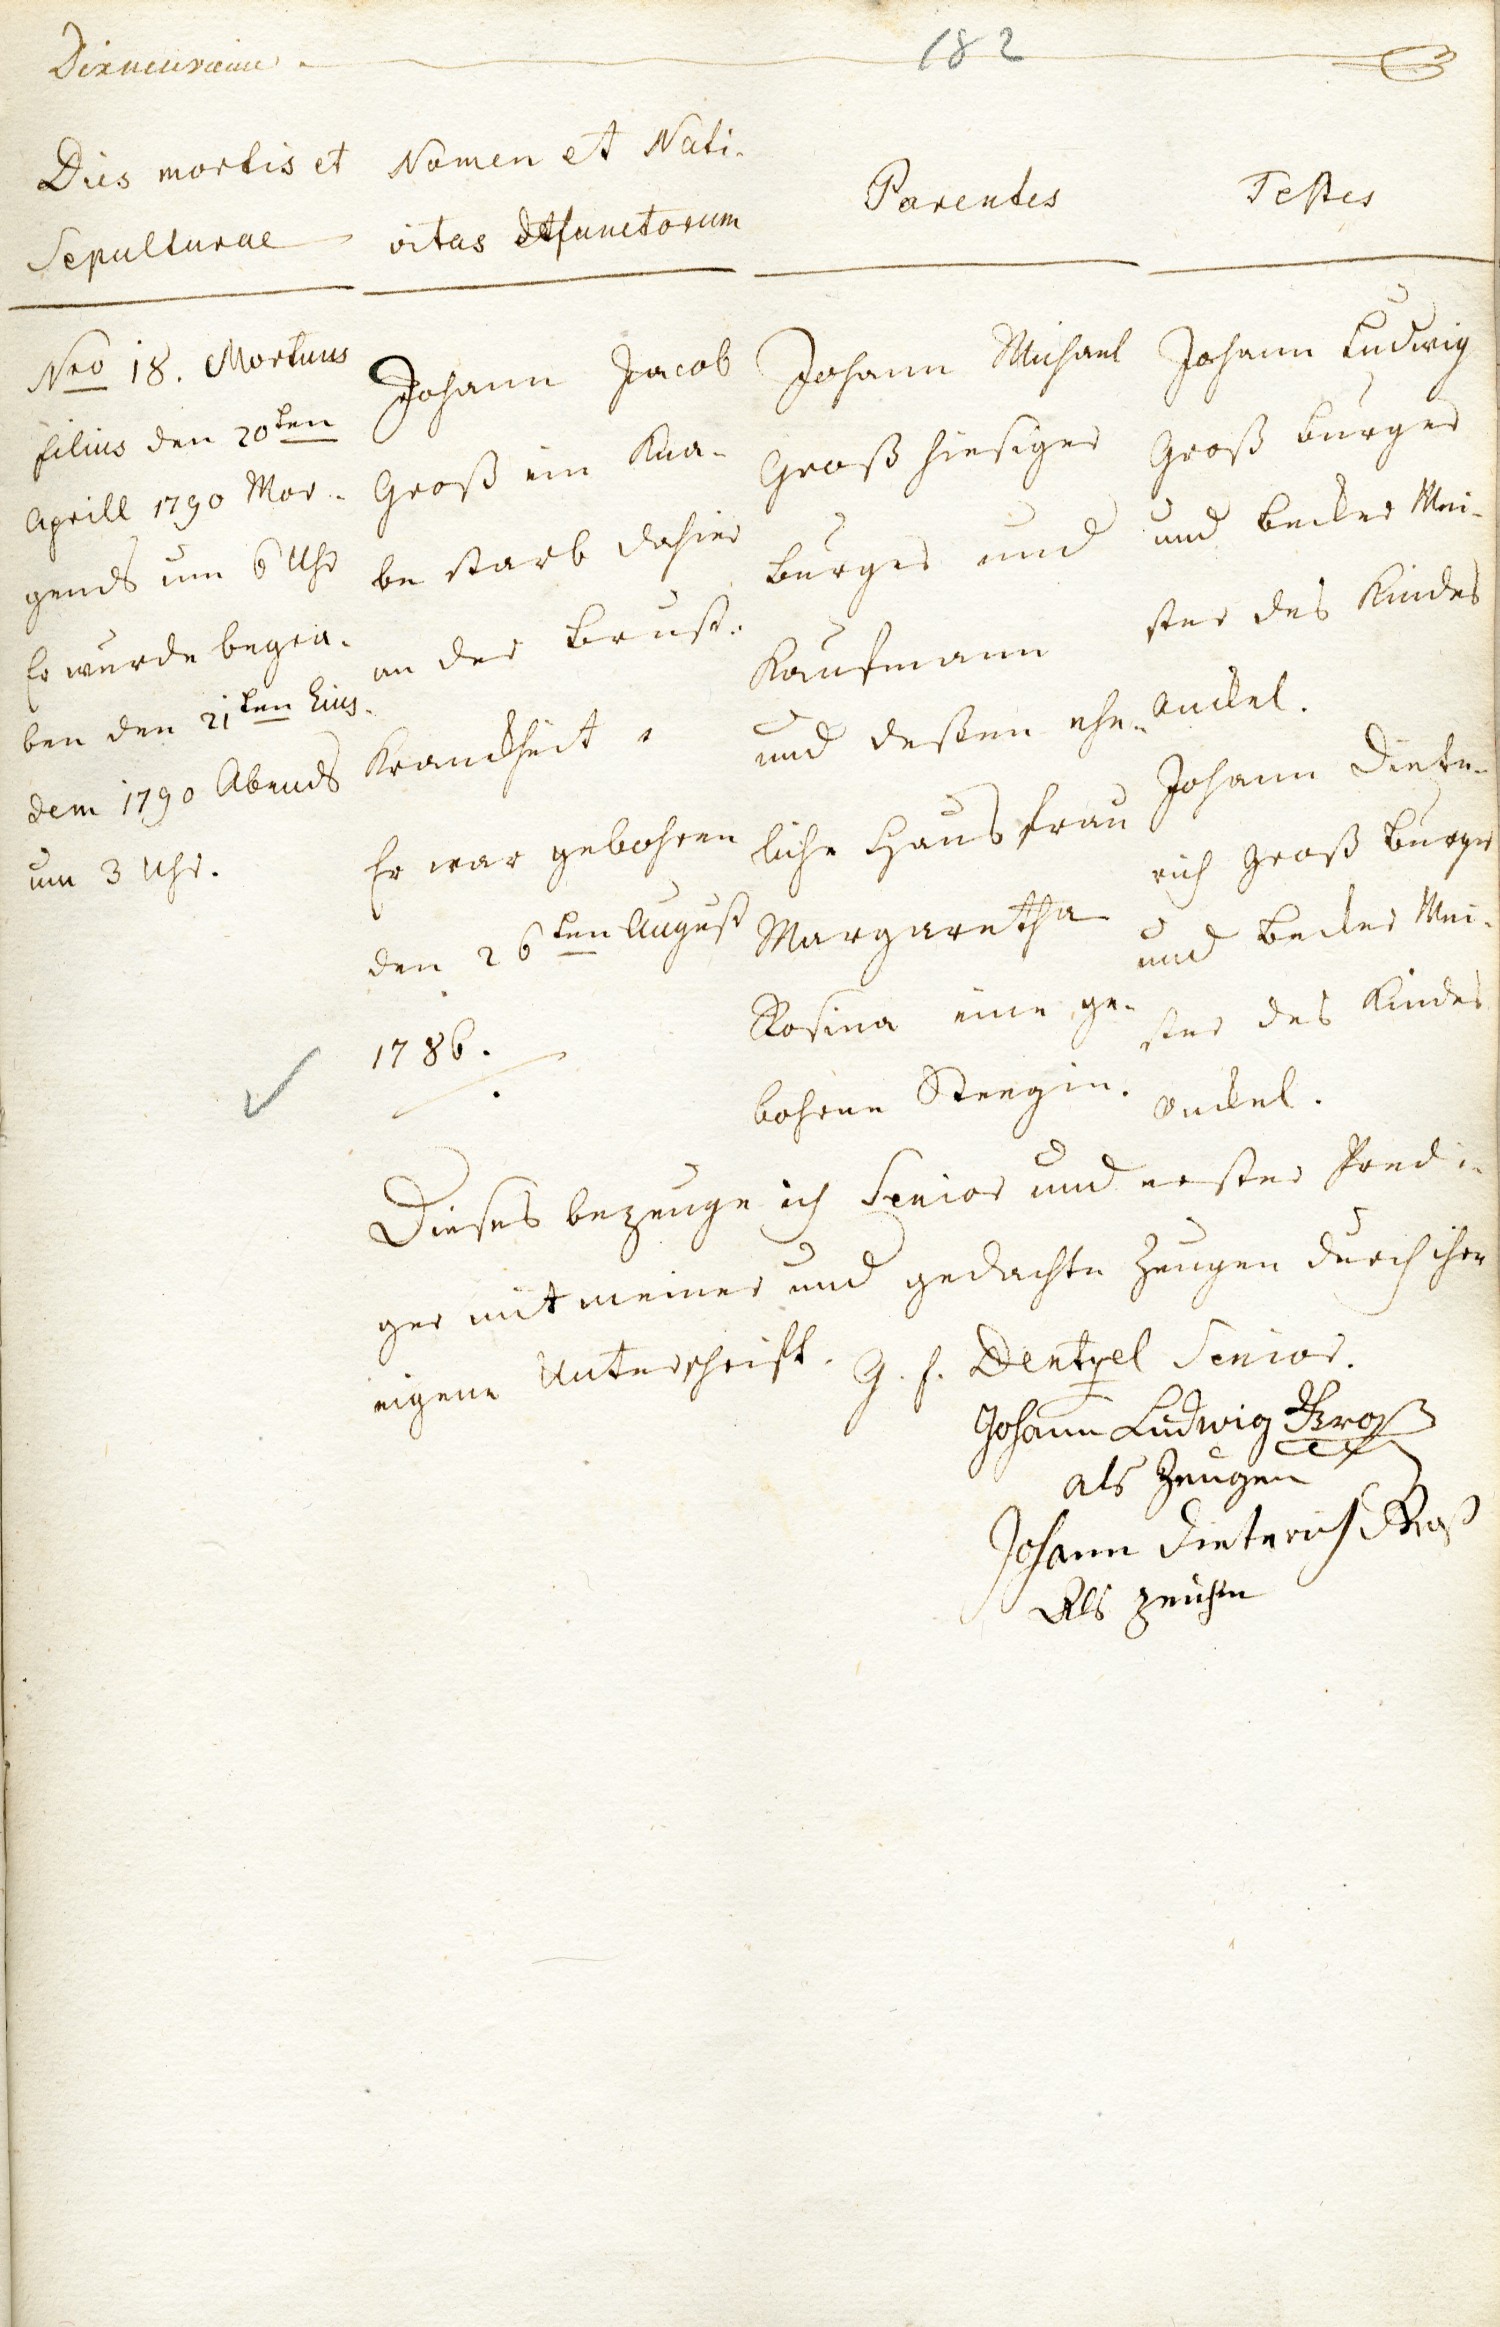 182
Dies mortis et
Sepulturae
Nomen et Nati-
vitas defunctorum
Parentes
Testes
Nro 18. Mortuus
filius den 20ten
Aprill 1790 Mor-
gends um 6 Uhr
Er wurde begra-
ben den 21ten Eius-
dem 1790 Abends
um 3 Uhr.
Johann Jacob
Groß ein Kna-
be starb dahier
an der Brust-
Kranckheit.
Er war gebohren
den 26ten August
1786.
Johann Michael
Groß hiesiger
burger und
Kaufmann
und deßen ehe-
liche Hausfrau
Margaretha
Rosina eine ge-
bohrne Stengin.
Johann Ludwig
Groß burger
und becker Mei-
ster des Kindes
Onckel.
Johann Diete-
rich Groß burger
und becker Mei-
ster des Kindes
Onckel.
Dieses bezeuge ich Senior und erster Predi-
ger mit meiner und gedachte Zeugen durch ihre
eigene Unterschrift. G. f. Dentzel Senior.
Johann Ludwig Groß
als Zeugen
Johann Dieterich Groß
Als zeichen